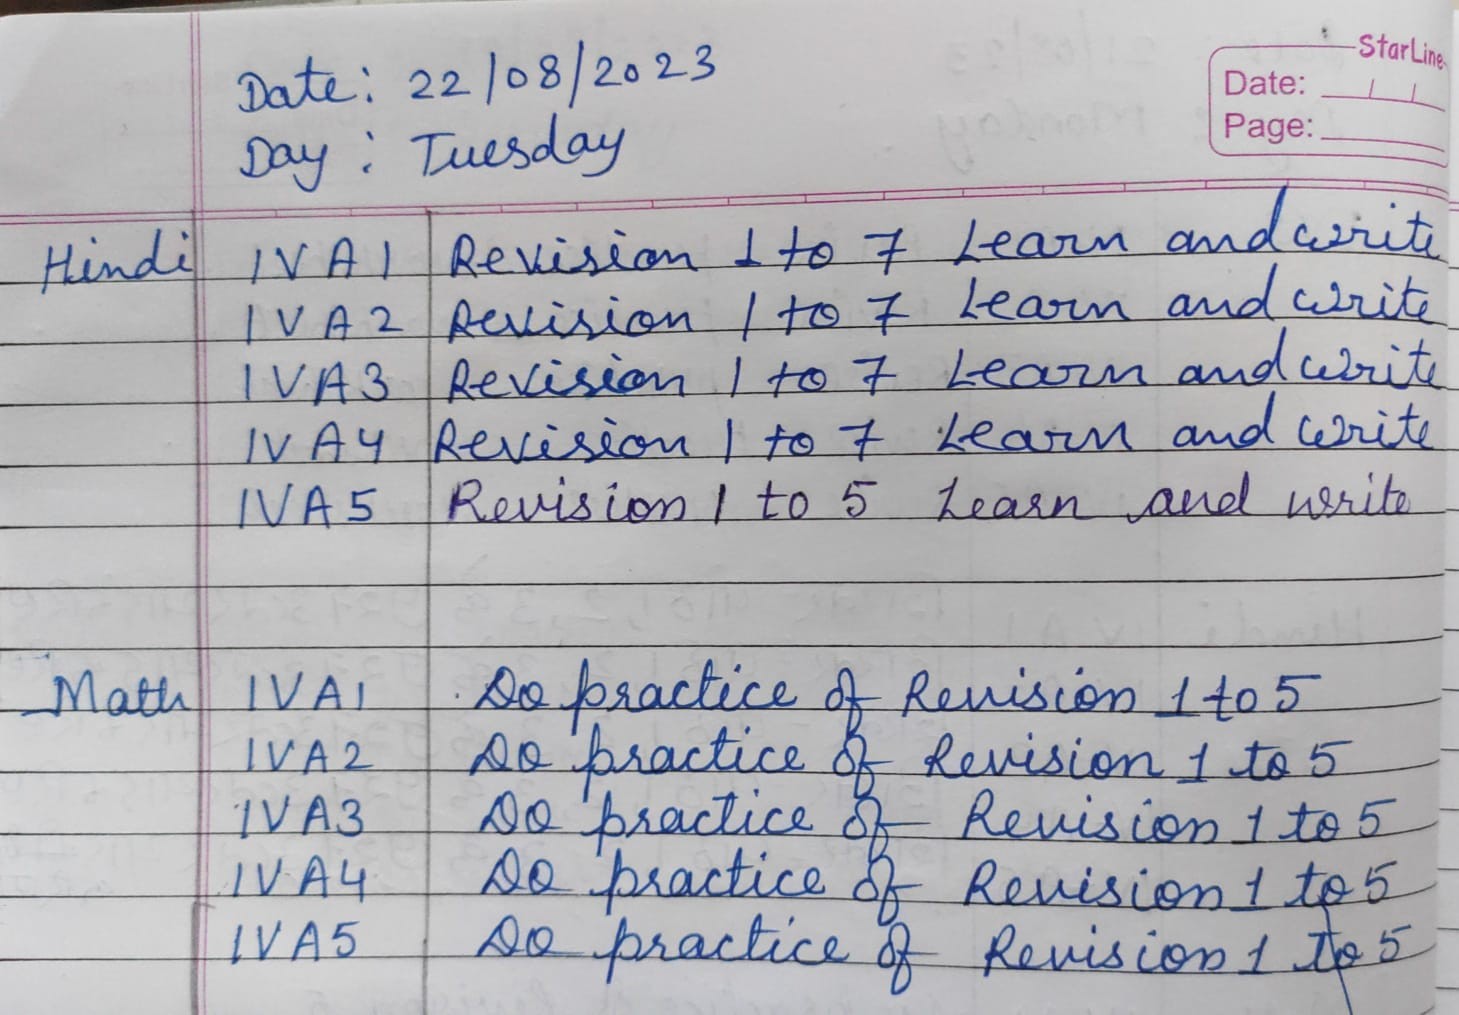 StarLine
Date: 22/08/2023
Date:
Day : Tuesday
Page:
Hindi IVA1 Revision 1 to 7 Learn and write
IVA2 Revision 1 to 7 Learn and write
IVA3 Revision 1 to 7 Learn and write
IVA4 Revision 1 to 7 Learn and write
IVA5 Revision 1 to 5 Learn and write
Math IVA1 Do practice of Revision 1 to 5
IVA2 Do practice of Revision 1 to 5
IVA3 Do practice of Revision 1 to 5
IVA4 Do practice of Revision 1 to 5
IVA5 Do practice of Revision 1 to 5